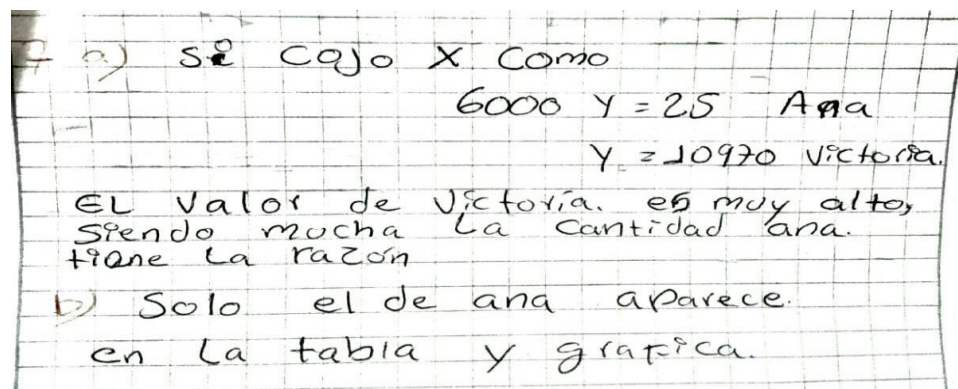 7 a) Si cojo X como
6000 Y = 25 Ana
Y = 10970 Victoria.
EL valor de Victoria. es muy alto,
siendo mucha La cantidad ana.
tiene La razón
b) Solo el de ana aparece.
en La tabla y grafica.